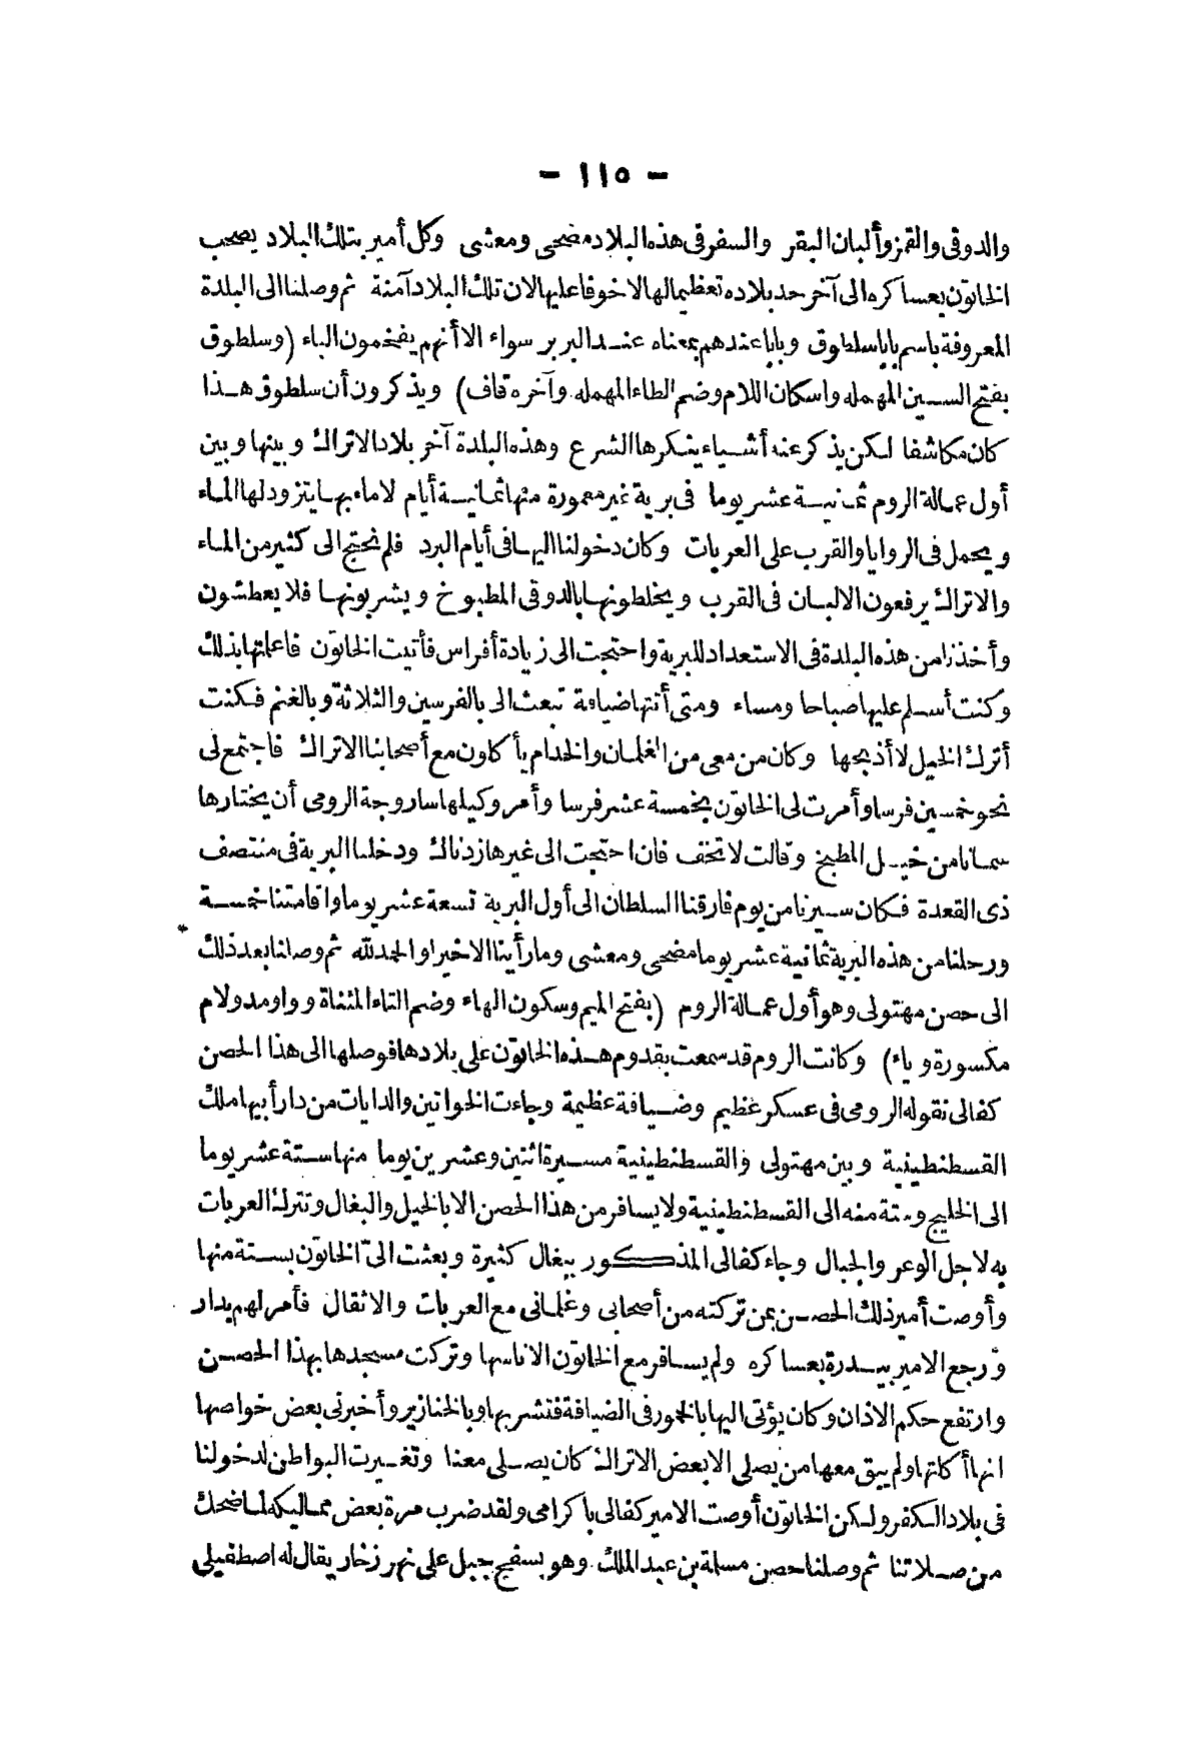 - ١١٥ -
والدوقى والقمز وألبان البقر والسفر فى هذه البلاد مضحى ومعشى وكل أمير بتلك البلاد يصحب
الخاتون بعساكره الى آخر حد بلاده تعظيما لها لا خوفا عليها لان تلك البلاد آمنة ثم وصلنا الى البلدة
المعروفة باسم بابا سلطوق وبابا عندهم بمعناه عند البربر سواء الا أنهم يفخمون الباء (وسلطوق
بفتح السين المهمله واسكان اللام وضم الطاء المهمله وآخره قاف) ويذكرون أن سلطوق هذا
كان مكاشفا لكن يذكر عنه أشياء ينكرها الشرع وهذه البلدة آخر بلاد الاتراك وبينها وبين
أول عمالة الروم ثمانية عشر يوما فى برية غير معمورة منها ثمانية أيام لا ماء بها يتزود لها الماء
ويحمل فى الروايا والقرب على العربات وكان دخولنا اليها فى أيام البرد فلم نحتج الى كثير من الماء
والاتراك يرفعون الالبان فى القرب ويخلطونها بالدوقى المطبوخ ويشربونها فلا يعطشون
وأخذنا من هذه البلدة فى الاستعداد للبرية واحتجت الى زيادة أفراس فأتيت الخاتون فاعلمتها بذلك
وكنت أسلم عليها صباحا ومساء ومتى أتتها ضيافة تبعث الى بالفرسين والثلاثة وبالغنم فكنت
أترك الخيل لا أذبحها وكان من معى من الغلمان والخدام يأكلون مع أصحابنا الاتراك فاجتمع لى
نحو خمسين فرسا وأمرت لى الخاتون بخمسة عشر فرسا وأمر وكيلها ساروجة الرومى أن يختارها
سمانا من خيل المطبخ وقالت لا تخف فان احتجت الى غيرها زدناك ودخلنا البرية فى منتصف
ذى القعدة فكان سيرنا من يوم فارقنا السلطان الى أول البرية تسعة عشر يوما واقامتنا خمسة
ورحلنا من هذه البرية ثمانية عشر يوما مضحى ومعشى وما رأينا الا خيرا والحمد لله ثم وصلنا بعد ذلك
الى حصن مهتولى وهو أول عمالة الروم (بفتح الميم وسكون الهاء وضم التاء المثناة وواو مد ولام
مكسورة وياء) وكانت الروم قد سمعت بقدوم هذه الخاتون على بلادها فوصلها الى هذا الحصن
كفالى نقوله الرومى فى عسكر عظيم وضيافة عظيمة وجاءت الخواتين والدايات من دار أبيها ملك
القسطنطينية وبين مهتولى والقسطنطينية مسيرة اثنين وعشرين يوما منها ستة عشر يوما
الى الخليج وستة منه الى القسطنطينية ولا يسافر من هذا الحصن الا بالخيل والبغال وتترك العربات
به لاجل الوعر والجبال وجاء كفالى المذكور ببغال كثيرة وبعثت الىّ الخاتون بستة منها
وأوصت أمير ذلك الحصن بمن تركته من أصحابى وغلمانى مع العربات والاثقال فأمر لهم بدار
ورجع الامير بيدرة بعساكره ولم يسافر مع الخاتون الا ناسها وتركت مسجدها بهذا الحصن
وارتفع حكم الاذان وكان يؤتى اليها بالخمور فى الضيافة فتشربها وبالخنازير وأخبرنى بعض خواصها
انها أكلتها ولم يبق معها من يصلى الا بعض الاتراك كان يصلى معنا وتغيرت البواطن لدخولنا
فى بلاد الكفر ولكن الخاتون أوصت الامير كفالى باكرامى ولقد ضرب مرة بعض مماليكه لما ضحك
من صلاتنا ثم وصلنا حصن مسلمة بن عبد الملك وهو بسفح جبل على نهر زخار يقال له اصطفيلى